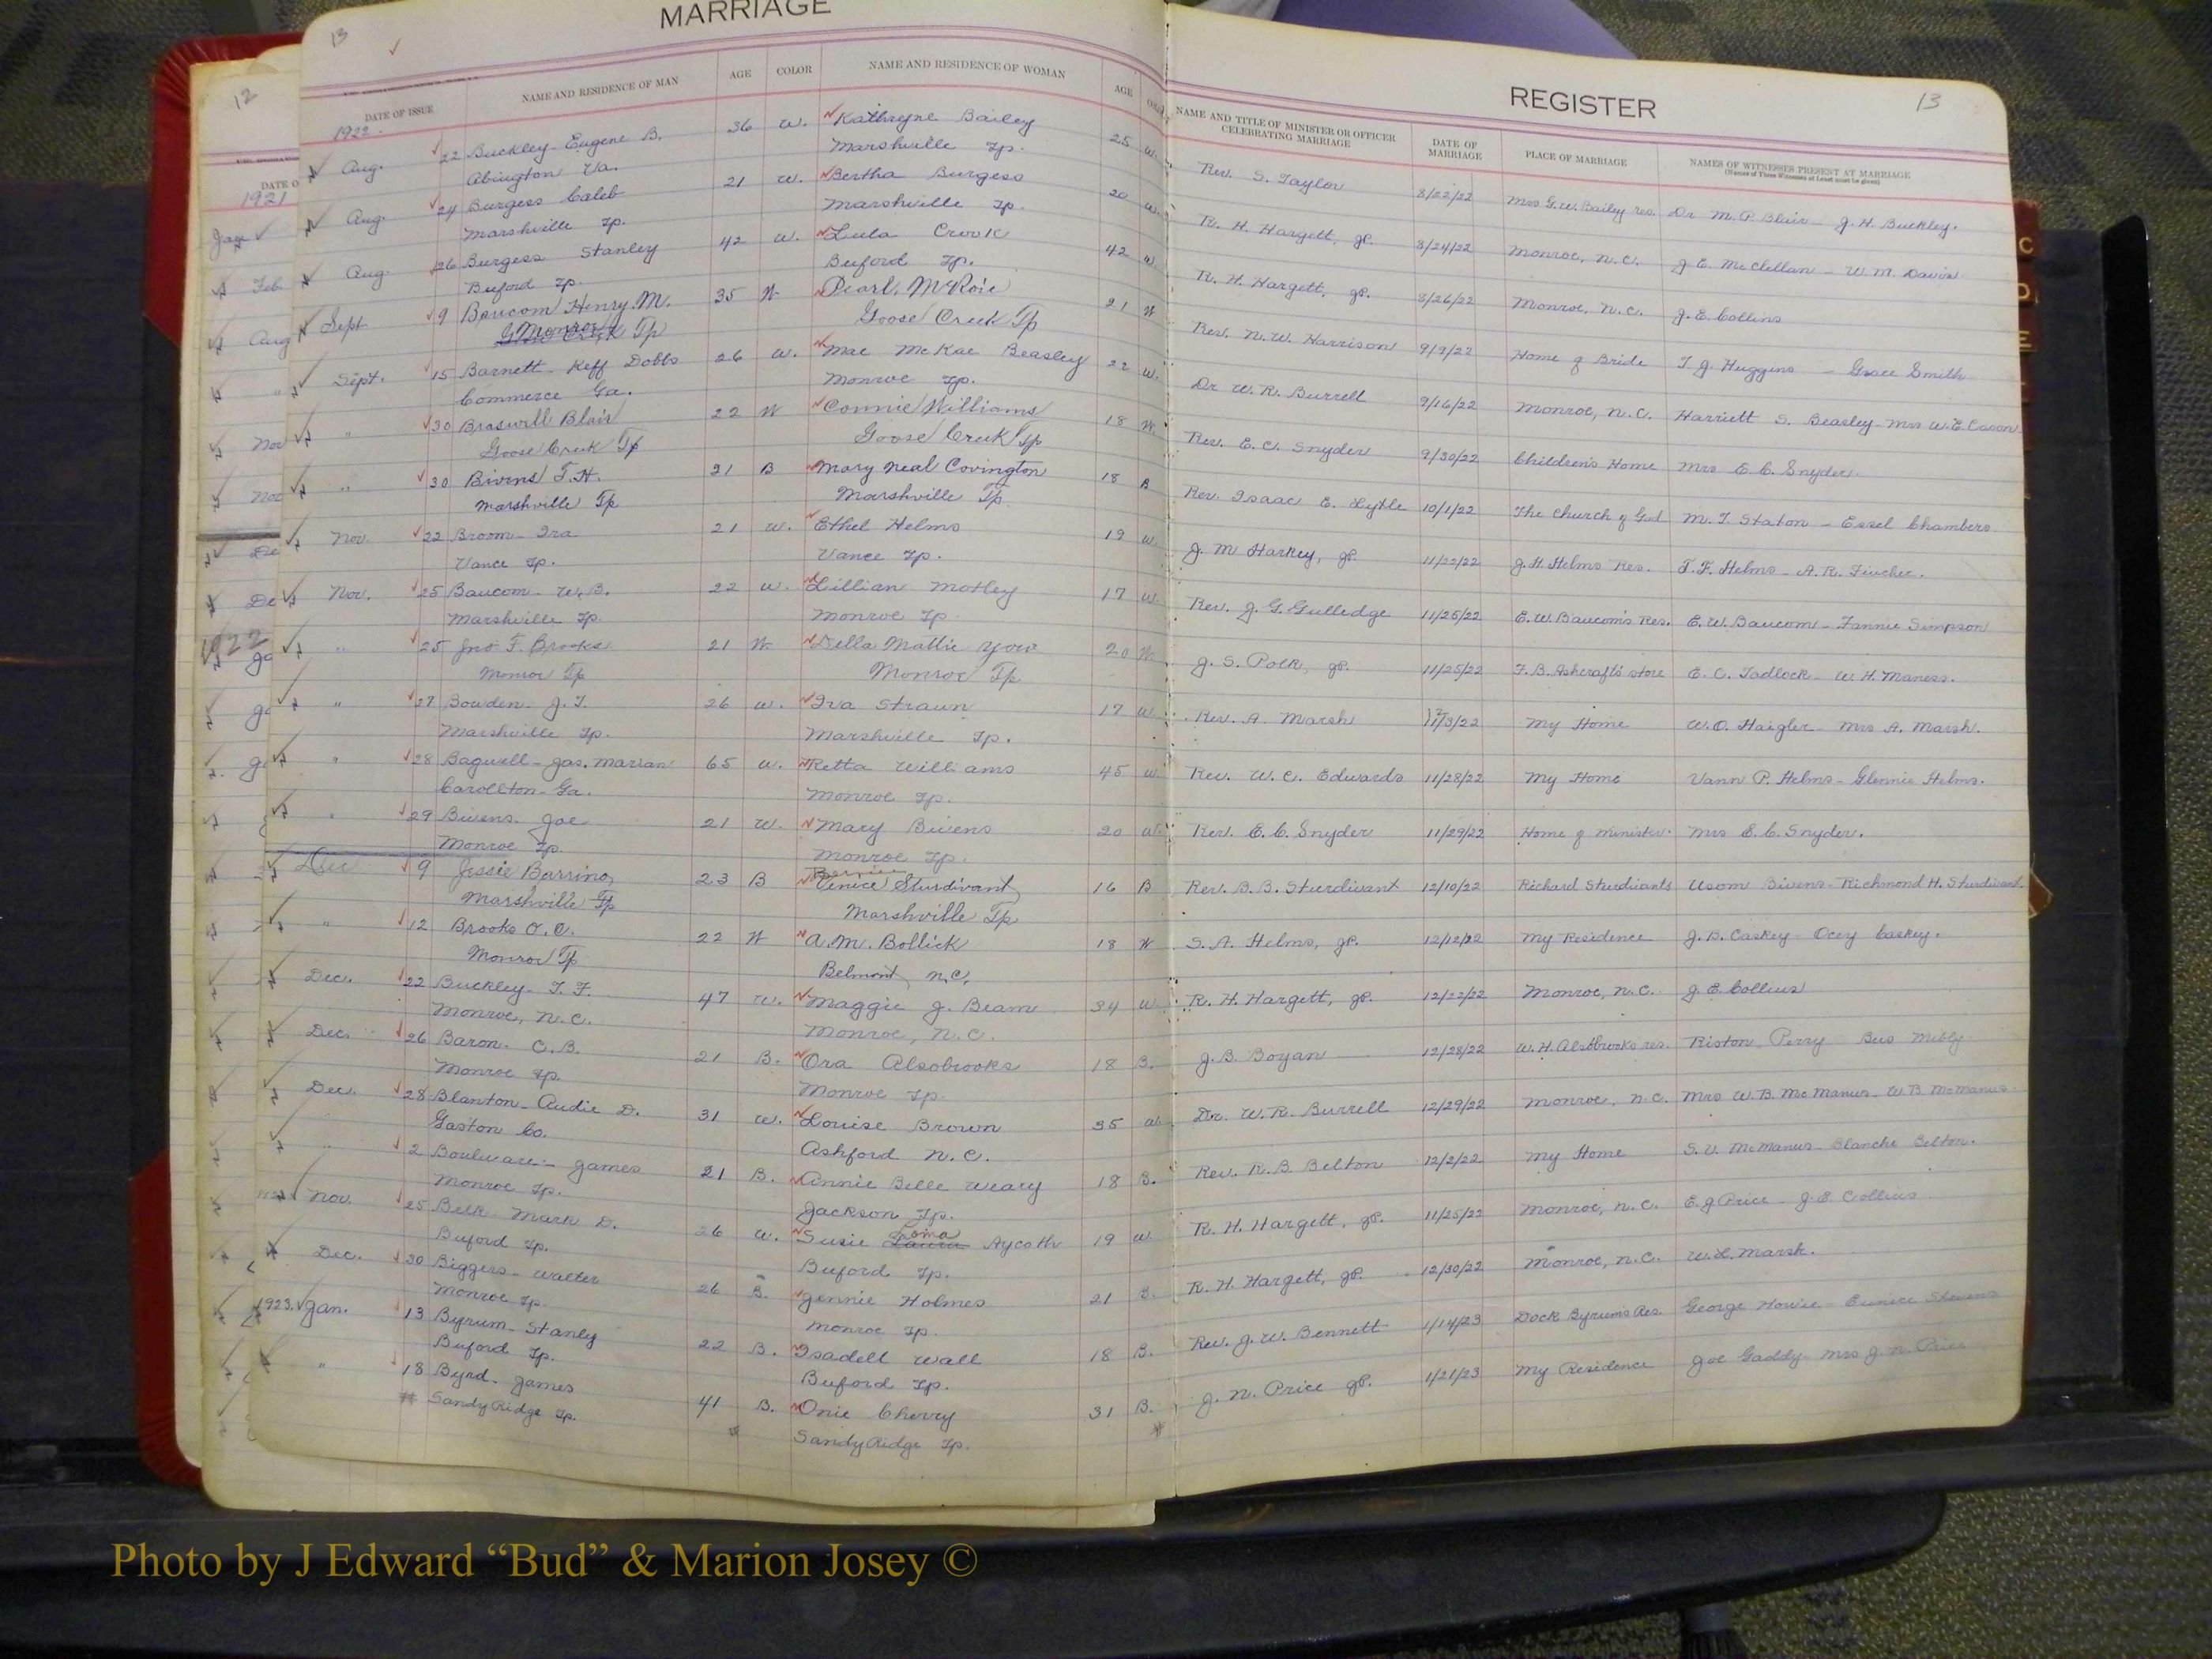 MARRIAGE
13
DATE OF ISSUE NAME AND RESIDENCE OF MAN AGE COLOR NAME AND RESIDENCE OF WOMAN AGE
1922
Aug. 22 Buckley- Eugene B. 36 W. Kathryne Bailey 25 W.
Abington Va. Marshville Tp.
Aug. 24 Burgess Caleb 21 W. Bertha Burgess 20 W.
Marshville Tp. Marshville Tp.
Aug. 26 Burgess Stanley 42 W. Lula Crook 42 W.
Buford Tp. Buford Tp.
Sept 9 Baucom Henry. M. 35 W Pearl. McRoie 21 W
Monroe Tp Goose Creek Tp
Sept. 15 Barnett- Keff Dobbs 26 W. Mae McRae Beasley 22 W.
Commerce Ga. Monroe Tp.
" 30 Braswell Blair 22 W Connie Williams 18 W
Goose Creek Tp Goose Creek Tp
" 30 Bivens T.H. 21 B Mary Neal Covington 18 B
Marshville Tp Marshville Tp.
Nov. 22 Broom- Ira 21 W. Ethel Helms 19 W
Vance Tp. Vance Tp.
Nov. 25 Baucom- W.B. 22 W. Lillian Motley 17 W.
Marshville Tp. Monroe Tp.
" 25 Jno F. Brooks 21 W Della Mattie Yow 20 W
Monroe Tp Monroe Tp
" 27 Bowden- J.T. 26 W. Iva Straun 17 W
Marshville Tp. Marshville Tp.
" 28 Bagwell- Jas. Marian 65 W. Retta Williams 45 W
Carollton- Ga. Monroe Tp.
" 29 Bivens- Joe 21 W. Mary Bivens 20 W.
Monroe Tp. Monroe Tp.
Dec 9 Jessie Barrino, 23 B Venice Sturdivant 16 B
Marshville Tp Marshville Tp
" 12 Brooks O.C. 22 W A.M. Bollick 18 W
Monroe Tp Belmont, N.C.
Dec. 22 Buckley- T.F. 47 W. Maggie J. Beam 34 W
Monroe, N.C. Monroe, N.C.
Dec. 26 Baron- C.B. 21 B. Ora Alsobrooks 18 B.
Monroe Tp. Monroe Tp.
Dec. 28 Blanton- Audie D. 31 W. Louise Brown 35 W
Gaston Co. Ashford N.C.
" 2 Boulware- James 21 B. Annie Belle Weary 18 B.
Monroe Tp. Jackson Tp.
Nov. 25 Belk- Mark D. 26 W. Susie Laura Aycoth 19 W
Buford Tp. Buford Tp.
Dec. 30 Biggers- Walter 26 B. Jennie Holmes 21 B.
Monroe Tp. Monroe Tp.
1923. Jan. 13 Byrum- Stanly 22 B. Isadell Wall 18 B.
Buford Tp. Buford Tp.
" 18 Byrd- James 41 B. Onie Cherry 31 B.
Sandy Ridge Tp. Sandy Ridge Tp.
REGISTER
13
NAME AND TITLE OF MINISTER OR OFFICER CELEBRATING MARRIAGE DATE OF MARRIAGE PLACE OF MARRIAGE NAMES OF WITNESSES PRESENT AT MARRIAGE
(Names of Three Witnesses at Least must be given)
Rev. S. Taylor 8/22/22 Mrs G.W. Bailey res. Dr M.P. Blair- J.H. Buckley.
R. H. Hargett, JP. 8/24/22 Monroe, N.C. J.E. McClellan- W.M. Davis
R. H. Hargett, JP. 8/26/22 Monroe, N.C. J.E. Collins
Rev. N.W. Harrison 9/9/22 Home of Bride T J. Huggins - Grace Smith
Dr W.R. Burrell 9/16/22 Monroe, N.C. Harriett S. Beasley- Mrs W.E. Cason
Rev. E.C. Snyder 9/30/22 Children's Home Mrs E.C. Snyder
Rev. Isaac E. Lytle 10/1/22 The Church of God M.T. Staton - Essel Chambers
J. M Harkey, JP. 11/22/22 J.H. Helms Res. T.F. Helms- A.R. Fincher.
Rev. J.G. Gulledge 11/26/22 E.W. Baucom's Res. E.W. Baucom- Fannie Simpson
J. S. Polk, JP. 11/25/22 F.B. Ashcraft's store E.C. Tadlock- W.H. Maness.
Rev. A. Marsh 12/3/22 My Home W.O. Haigler- Mrs A. Marsh.
Rev. W.C. Edwards 11/28/22 My Home Vann P. Helms- Glennie Helms.
Rev. E.C. Snyder 11/29/22 Home of Minister. Mrs E.C. Snyder.
Rev. B.B. Sturdivant 12/10/22 Richard Sturdivants Usom Bivens- Richmond H. Sturdivant.
S.A. Helms, JP. 12/12/22 My Residence J.B. Caskey- Ocey Caskey.
R.H. Hargett, JP. 12/22/22 Monroe, N.C. J.E. Collins
J.B. Boyan 12/28/22 W.H. Alsobrooks res. Riston Perry
Dr. W.R. Burrell 12/29/22 Monroe, N.C. Mrs W.B. McManus- W.B. McManus
Rev. R.B. Belton 12/2/22 My Home S.V. McManus- Blanche Belton.
R.H. Hargett, JP. 11/25/22 Monroe, N.C. E.J Price - J.E. Collins
R.H. Hargett, JP. 12/30/22 Monroe, N.C. W.L. Marsh.
Rev. J.W. Bennett 1/14/23 Dock Byrum's Res. George Howie- Eunice Stevens
J. N. Price JP. 1/21/23 My Residence Joe Gaddy- Mrs J.N. Price
12
1921
1922
Photo by J Edward “Bud” & Marion Josey ©